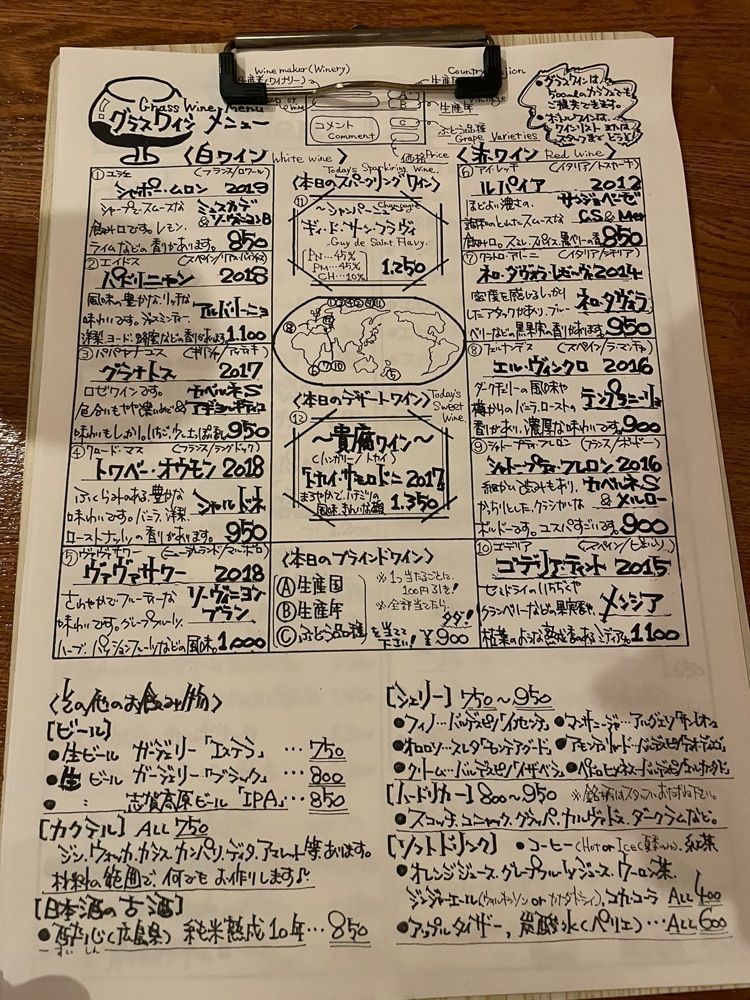 Winemaker (Winery)
生産者(ワイナリー)
Country
生産年
コメント
Comment
ぶどう品種
Grape Varieties
価格 Price
Grass Wine Menu
グラスワイン メニュー
グラスワインは、
500mlのカラフェでも
ご提供できます。
ボトルワインは、
ワインリスト または
スタッフまで どうぞ!
〈白ワイン White wine〉
① ユシェ (フランス/ロワール)
シャポー・ムロン 2019
シャープでスムースな ミュスカデ
飲み口です。レモン、 & ソーヴィニヨンB
ライムなどの香りがあります。 850
② エイドス (スペイン/リアス・バイシャス)
パドリニャン 2018
風味の豊かな、リッチな
味わいです。ジャスミンティー、 アルバリーニョ
洋梨、ヨード、蜂蜜などの香りがあります。 1.100
③ パパヤナコス (ギリシャ/アッティキ)
グラナトス 2017
ロゼワインです。 カベルネS
色合いもやや濃いめで & アギヨルギティコ
味わいもしっかり。いちご、 950
④ クロード・マス (フランス/ラングドック)
トワベー・オウモン 2018
ふくらみのある、豊かな シャルドネ
味わいです。バニラ、洋梨、
ローストナッツの香りがあります。 950
⑤ ヴァヴァサワー (ニュージーランド/マールボロ)
ヴァヴァサワー 2018
さわやかでフルーティーな ソーヴィニヨン
味わいです。グレープフルーツ、 ブラン
ハーブ、パッションフルーツなどの風味。 1.000
Today's Sparkring Wine.
〈本日のスパークリングワイン〉
⑪ 〜シャンパーニュ〜 Champagne
ギィ・ド・サンフラヴィ
Guy de Saint Flavy.
PN…45%
PM…45%
CH…10%
1.250
〈本日のデザートワイン〉 Today's Sweet Wine.
⑫ 〜貴腐ワイン〜
(ハンガリー/トカイ)
トカイ・サモロドニ 2017
まろやかで、ハチミツの
風味、きれいな酸 1.350
〈本日のブラインドワイン〉
Ⓐ 生産国
Ⓑ 生産年
Ⓒ ぶどう品種 を当てて下さい! ¥900
※1つ当たるごとに、
100円引き!
※全部当てたら、
タダ!
〈赤ワイン Red wine〉
⑥ アイ・レッキ (イタリア/トスカーナ)
ルパイア 2012
ほどよい濃さの、 サンジョベーゼ
調和のとれたスムースな C.S & Mer
飲み口。スミレ、スパイス、黒ベリーの香 850
⑦ (イタリア/シチリア)
ネロ・ダヴォラ・レゼルヴァ 2014
密度を感じるしっかり ネロ・ダヴォラ
したアタックがあり、ブルー
ベリーなどの黒果実の香りがあります。 950
⑧ フェルナンデス (スペイン/ラ・マンチャ)
エル・ヴィンクロ 2016
ダークチェリーの風味や テンプラニーリョ
樽からのバニラ、ローストの
香りがあり、濃厚な味わいです。 900
⑨ シャトー・プティ・フレロン (フランス/ボルドー)
シャトー・プティ・フレロン 2016
細かい渋みもあり、 カベルネS
かっちりとした、クラシカルな & メルロー
ボルドーです。コスパすごいです。 900
⑩ ゴデリア (スペイン/ビエルソ)
ゴデリア ティント 2015
セミドライのいちじくや
クランベリーなどの果実香や、 メンシア
枯葉のような熟成香のあるミディアム。 1100
〈その他のお飲み物〉
[ビール]
●生ビール ガージェリー「エステラ」 … 750
●生ビール ガージェリー「ブラック」 … 800
● 〃 志賀高原ビール「IPA」 … 850
[カクテル] ALL 750
ジン、ウォッカ、カシス、カンパリ、ディタ、アマレット等、あります。
材料の範囲で、何でも お作りします♪
[日本酒の古酒]
●酔心(広島県) 純米熟成10年 … 850
すいしん
[シェリー] 750〜950
●フィノ…バルデスピノ/イノセンテ
●オロロソ…
●クリーム…バルデスピノ/イザベラ
[ハードリカー] 800〜950 ※銘柄はスタッフにおたずね下さい。
●スコッチ、コニャック、グラッパ、カルヴァドス、ダークラムなど。
[ソフトドリンク] ●コーヒー(Hot or Ice(夏季のみ))、紅茶
●オレンジジュース、グレープフルーツジュース、ウーロン茶、
ジンジャーエール(ウィルキンソン or カナダドライ)、コカコーラ ALL 400
●アップルタイザー、炭酸水(ペリエ) … ALL 600